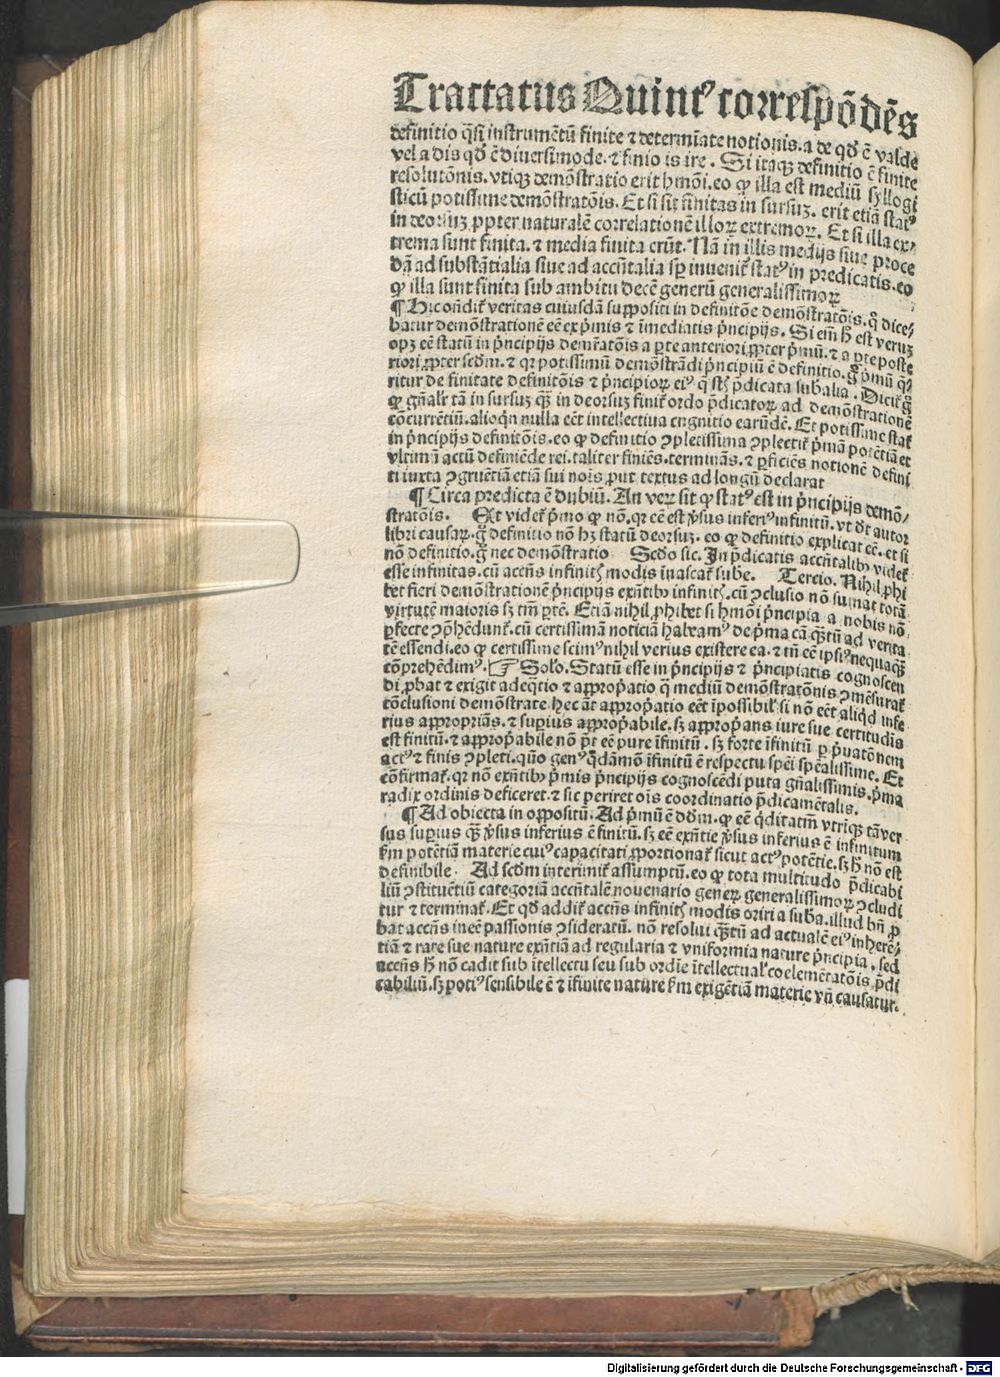 Tractatus Quintꝰ correspōdēs
definitio q̄si instrumētū finite ⁊ determīate notionis. a de qd̄ ē valde
vel a dis qd̄ ē diuersimode. ⁊ finio is ire. Si itaqꝫ definitio ē finite
resolutōnis. vtiqꝫ demōstratio erit hmōi. eo ꝙ illa est mediū syllogi
sticū potissime demōstratōis. Et si sit finitas in sursuꝫ. erit etiā statꝰ
in deorsuꝫ ꝓpter naturalē correlationē illoꝝ extremoꝝ. Et si illa ex⸗
trema sunt finita. ⁊ media finita erūt. Nā in illis medijs siue proce
dā ad substātialia siue ad accn̄talia sp̄ inuenit̄ statꝰ in predicatis. eo
ꝙ illa sunt finita sub ambitu decē generū generalissimoꝝ
¶ Hic on̄dit̄ veritas cuiusdā suppositi in definitōe demōstratōis. q̄ dice⸗
batur demōstrationē eē ex p̄mis ⁊ īmediatis p̄ncipijs. Si em̄ h̄ est veruꝫ
opꝫ eē statū in p̄ncipijs demr̄atōis a ꝑte anteriori ꝓpter p̄mū. ⁊ a ꝑte poste
riori ꝓpter scdm̄. ⁊ qꝛ potissimū demōstrādi p̄ncipiū ē definitio. gͦ p̄mū q̄
ritur de finitate definitōis ⁊ p̄ncipioꝝ eiꝰ q̄ st̄ p̄dicata subalia. Dicit̄ gͦ
ꝙ gn̄alr̄ tā in sursuꝫ q̄ꝫ in deorsuꝫ finit̄ ordo p̄dicatoꝝ ad demōstrationē
cōcurrētiū. alioqn̄ nulla eēt intellectiua cognitio earūdē. Et potissime stat̄
in p̄ncipijs definitōis. eo ꝙ definitio ꝯpletissima ꝯplectit̄ p̄mā potētiā et
vltimū actū definiēde rei. taliter finiēs. terminās. ⁊ ꝑficiēs notionē defini
ti iuxta ꝯgruētiā etiā sui nois. ꝓut textus ad longū declarat
¶ Circa predicta ē dubiū. An veꝝ sit ꝙ statꝰ est in p̄ncipijs demō⸗
stratōis. Et videt̄ p̄mo ꝙ nō. qꝛ eē est ꝟsus inferiꝰ infinitū. vt dt̄ autor
libri causaꝝ. gͦ definitio nō hꝫ statū deorsuꝫ. eo ꝙ definitio explicat eē. et si
nō definitio. gͦ nec demōstratio Scdo sic. In p̄dicatis accn̄talibꝰ videt̄
esse infinitas. cū accn̄s infinitꝭ modis inascat̄ sube. Tercio. Nihil ꝓhi
bet fieri demōstrationē p̄ncipijs exn̄tibꝰ infinitꝭ. cū ꝯclusio nō sumat totā
virtutē maioris sꝫ tm̄ ꝑtē. Etiā nihil ꝓhibet si hmōi p̄ncipia a nobis nō
ꝑfecte ꝯp̄hēdunt̄. cū certissimā noticiā habeamꝰ de p̄ma cā q̄ꝫtū ad verita
tē essendi. eo ꝙ certissime scimꝰ nihil verius existere ea. ⁊ tn̄ eē ipsiꝰ nequaq̄ꝫ
cōprehēdimꝰ. ☞ Solo. Statū esse in p̄ncipijs ⁊ p̄ncipiatis cognoscen
di ꝓbat ⁊ exigit adeq̄tio ⁊ appropatio q̄ mediū demōstratōnis ꝯmēsurat̄
cōclusioni demōstrate. hec at̄ appropatio eēt īpossibil̓ si nō eēt aliqd̓ infe
rius appropriās. ⁊ supius appropabile. sꝫ appropans iure sue certitudīs
est finitū. ⁊ appropabile nō pt̄ eē pure īfinitū. sꝫ forte īfinitū ꝑ p̄uatōnem
actꝰ ⁊ finis ꝯpleti. quō genꝰ q̄dāmō īfinitū ē respectu spēi spēalissime. Et
cōfirmat̄. qꝛ nō exn̄tibꝰ p̄mis p̄ncipijs cognoscēdi puta gn̄alissimis. p̄ma
radix ordinis deficeret. ⁊ sic periret ois coordinatio p̄dicamētalis.
¶ Ad obiecta in oppositū. Ad p̄mū ē dd̄m. ꝙ eē q̓ditatiū vtriqꝫ tā ver
sus supius q̄ꝫ ꝟsus inferius ē finitū. sꝫ eē exn̄tie ꝟsus inferius ē infinitum
km̄ potētiā materie cuiꝰ capacitati ꝓportionat̄ sicut actꝰ potētie. sꝫ h̄ nō est
definibile. Ad scdm̄ interimit̄ assumptū. eo ꝙ tota multitudo p̄dicabi
liū ꝯstituētiū categoriā accn̄talē nouenario geneꝝ generalissimoꝝ ꝯcludi
tur ⁊ terminat̄. Et qd̄ addit̄ accn̄s infinitꝭ modis oriri a suba. illud hn̄ p̄
bat accn̄s ineē passionis ꝯsideratū. nō resolui q̄ꝫtū ad actualē eiꝰ inherē⸗
tiā ⁊ rare sue nature exn̄tiā ad regularia ⁊ vniformia nature p̄ncipia. sed
accn̄s h̄ nō cadit sub ītellectu seu sub ordīe ītellectual̓ coelemētatōis p̄di
cabiliū. sꝫ potiꝰ sensibile ē ⁊ īfinite nature km̄ exigētiā materie vn̄ causatur.
Digitalisierung gefördert durch die Deutsche Forschungsgemeinschaft - DFG